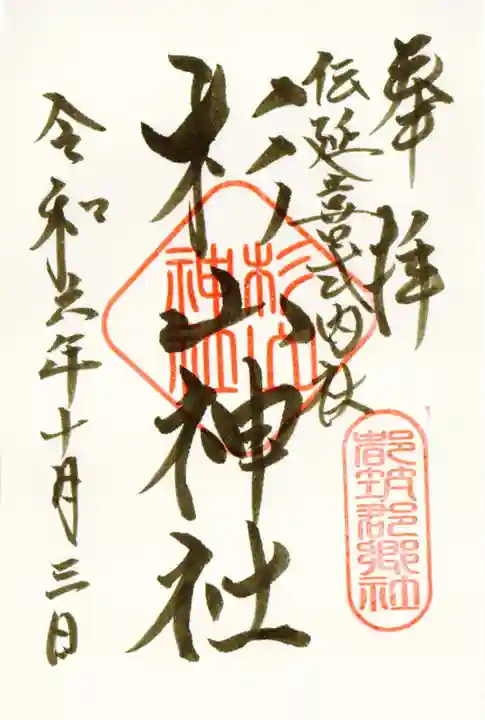 奉拝
伝延喜式内社
都筑郡郷社
杉山神社
杉山
神社
令和六年十月三日